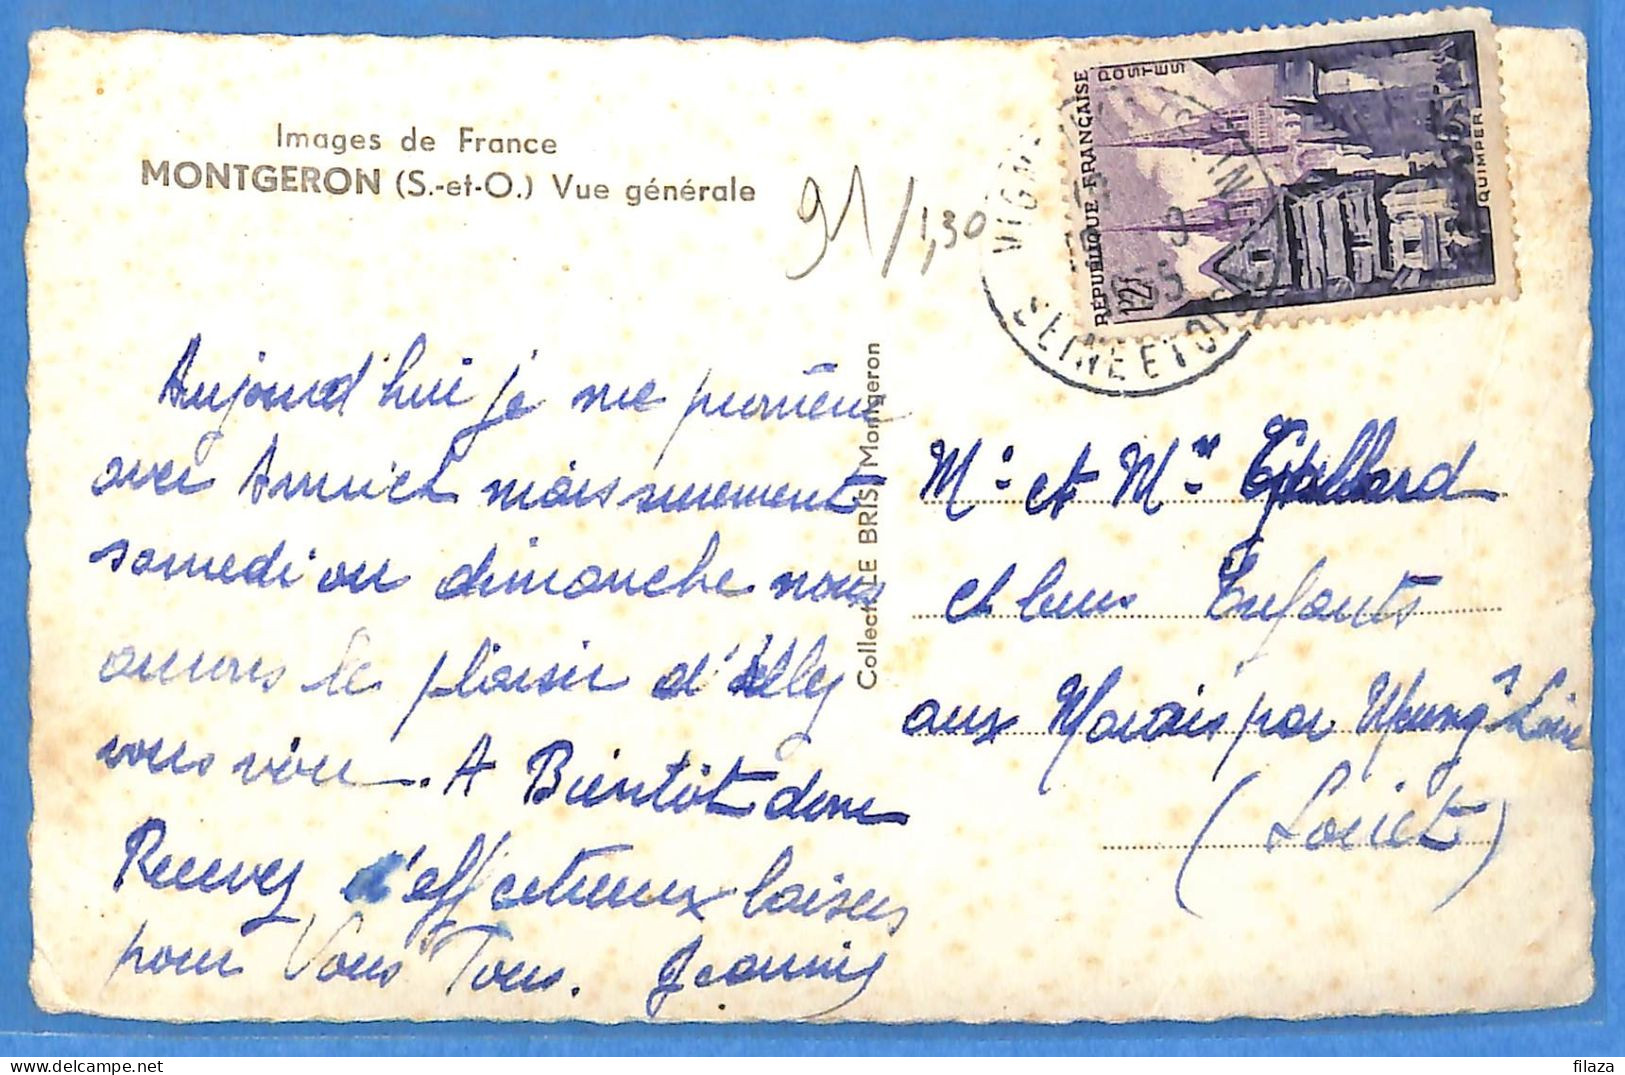 Images de France
MONTGERON (S.-et-O.) Vue générale
91/1,30
RÉPUBLIQUE FRANÇAISE
POSTES
12f
QUIMPER
VIGN
SEINE ET OISE
Collect. LE BRIS Montgeron
Aujourd'hui je me promène
avec Annick mais surement
samedi ou dimanche nous
aurons le plaisir d'alley
vous voir. A Bientôt donc
Recevez d'affectueux baisers
pour Vous Tous. Jeannine
Mr et Mme Gaillard
et leurs Enfants
aux Marais par Meung s/ Loire
(Loiret)
filaza